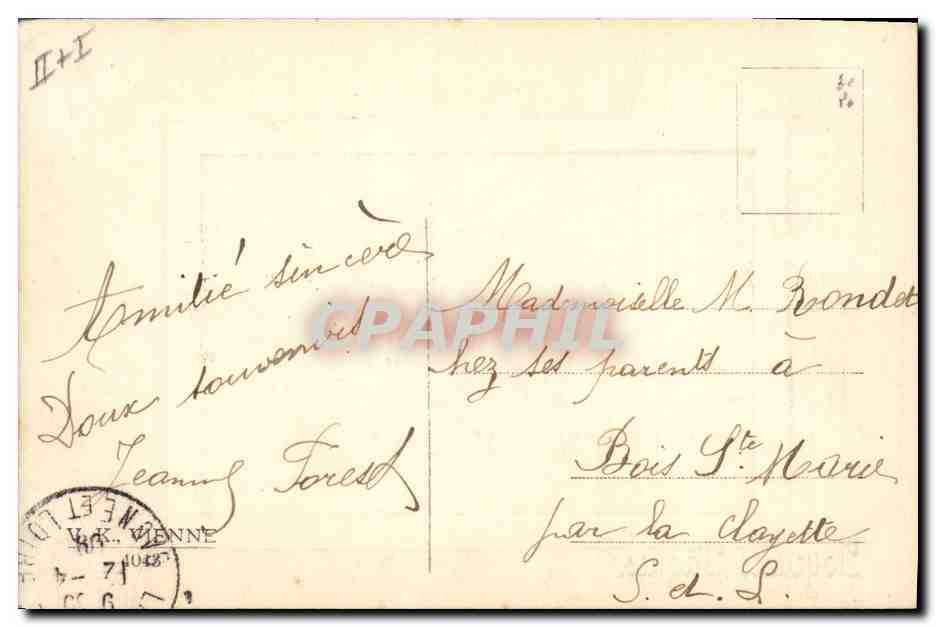 II + I
Amitié sincère
Doux souvenirs
Jeanne Forest
Mademoiselle M. Rondet
chez ses parents à
Bois Ste Marie
par la Clayette
S. et. L.
CPAPHIL
V. K., VIENNE
4043
SAONE ET LOIRE
12 - 4